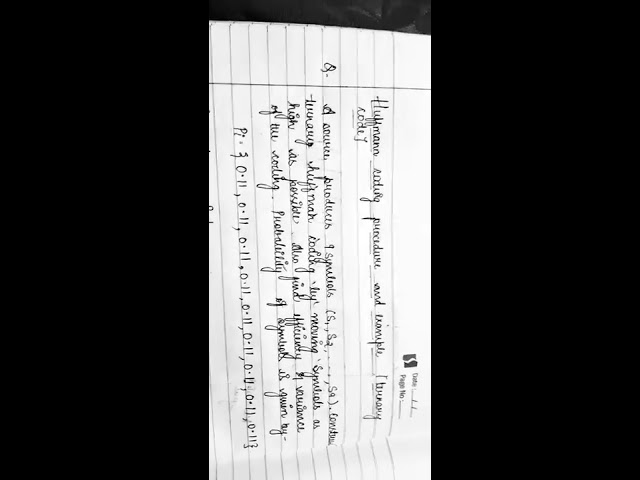 Date: 1 1
Page No:
Huffmann coding procedure and example [ternary
code]
Q. A source produces 9 symbols (S1, S2, . . . , S9). Construct
ternary Huffman coding by moving symbols as
high as possible. Also find efficiency & variance
of the coding. Probability of symbols is given by-
Pi = { 0.11, 0.11, 0.11, 0.11, 0.11, 0.11, 0.11, 0.11, 0.11}